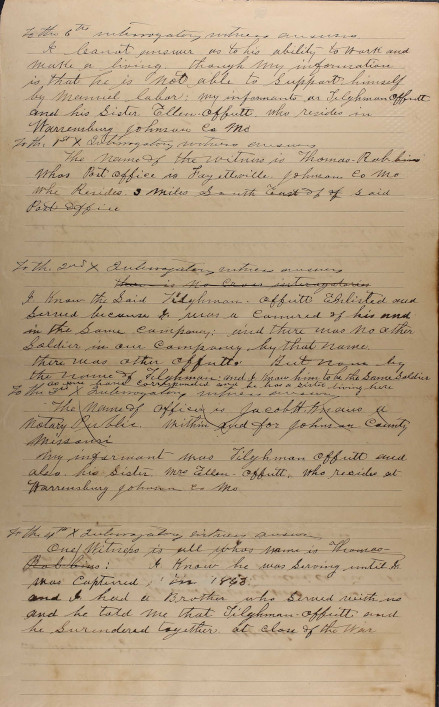 To the 6th interrogatory witness answers
I cannot answer as to his ability to work and
make a living though my information
is that he is not able to support himself
by manuel labor; my informants as Tilghman Offutt
and his Sister Ellen Offutt who resides in
Warrensburg Johnson Co Mo
To the 1st X Interrogatory witness answers
The name of the witness is Thomas Robbins
Whos Post office is Fayetteville Johnson Co Mo
Who Resides 3 miles South East of said
Post Office
To th. 2nd X Interrogatory witness answers
There is no Cross interrogatories
I know the said Tilghman Offutt Enlisted and
Served because I was a Comred of his and
in the Same Company; and there was no other
Soldier in our Company by that name.
there was other Offutts But none by
the name of Tilghman. and I know him to be the Same Soldier
as we have corresponded and he has a sister living here
To the 3rd X Interrogatory witness answers
The name of Officer is Jacob H. Knaus a
Notary Public Within and for Johnson County
Missouri
My informant was Tilghman Offutt and
also his Sister Mrs Ellen Offutt, who resides at
Warrensburg Johnson Co Mo
To the 4th X Interrogatory witness answers
One Witness is all whos name is Thomas
Robbins: I Know he was Serving until I
was Captured, in 1863
and I had a Brother who Served with us
and he told me that Tilghman Offutt and
he Surendered together at Close of the War